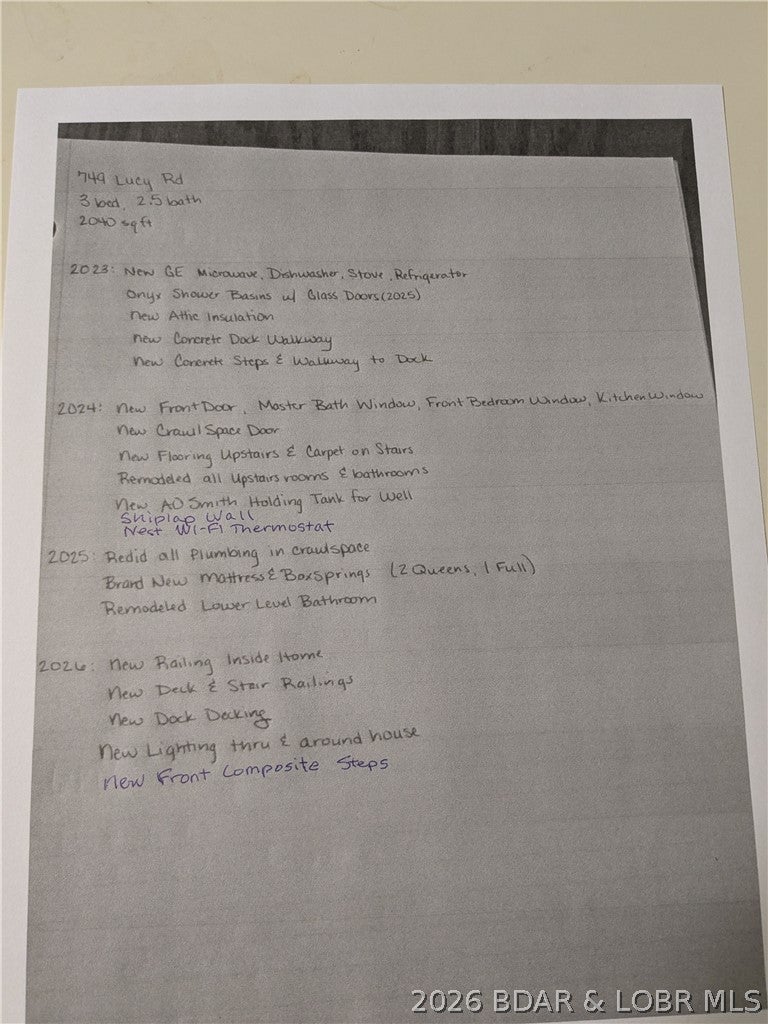 749 Lucy Rd
3 bed, 2.5 bath
2040 sq ft
2023: New GE Microwave, Dishwasher, Stove, Refrigerator
Onyx Shower Basins w/ Glass Doors (2025)
New Attic Insulation
New Concrete Dock Walkway
New Concrete Steps & Walkway to Dock
2024: New Front Door, Master Bath Window, Front Bedroom Window, Kitchen Window
New Crawl Space Door
New Flooring Upstairs & Carpet on Stairs
Remodeled all Upstairs rooms & bathrooms
New AO Smith Holding Tank for Well
Shiplap Wall
Nest Wi-Fi Thermostat
2025: Redid all Plumbing in crawlspace
Brand New Mattress & Box Springs (2 Queens, 1 Full)
Remodeled Lower Level Bathroom
2026: New Railing Inside Home
New Deck & Stair Railings
New Dock Decking
New Lighting thru & around house
New Front Composite Steps
2026 BDAR & LOBR MLS